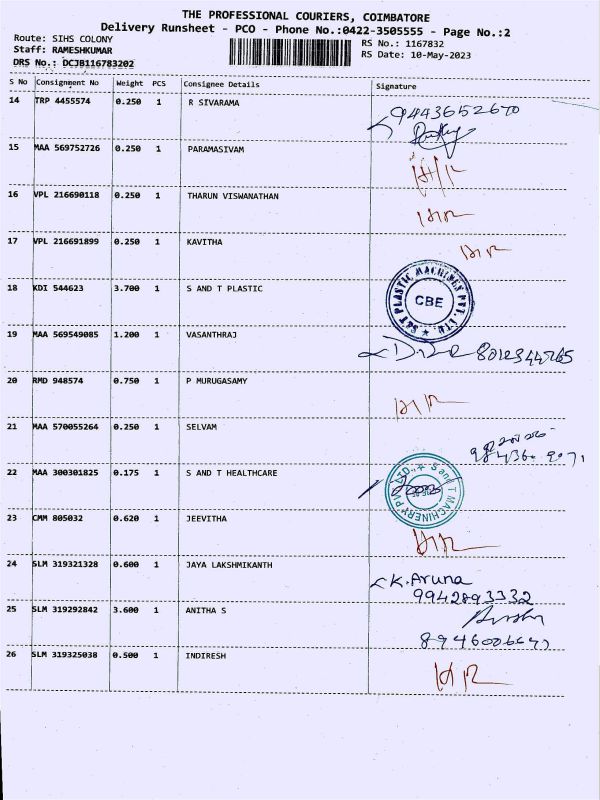 THE PROFESSIONAL COURIERS, COIMBATORE
Delivery Runsheet - PCO - Phone No.:0422-3505555 - Page No.:2
Route: SIHS COLONY
RS No.: 1167832
Staff: RAMESHKUMAR
RS Date: 10-May-2023
DRS No.: DCJB116783202
S No Consignment No Weight PCS Consignee Details Signature
14 TRP 4455574 0.250 1 R SIVARAMA 9443652670
15 MAA 569752726 0.250 1 PARAMASIVAM
16 VPL 216690118 0.250 1 THARUN VISWANATHAN
17 VPL 216691899 0.250 1 KAVITHA
18 KDI 544623 3.700 1 S AND T PLASTIC
S&T PLASTIC MACHINES PVT. LTD. ★
CBE
19 MAA 569549085 1.200 1 VASANTHRAJ
20 RMD 948574 0.750 1 P MURUGASAMY
21 MAA 570055264 0.250 1 SELVAM
22 MAA 300301825 0.175 1 S AND T HEALTHCARE
S and T MACHINERY PVT LTD., ★
23 CMM 805032 0.620 1 JEEVITHA
24 SLM 319321328 0.600 1 JAYA LAKSHMIKANTH
K. Aruna
9942893332
25 SLM 319292842 3.600 1 ANITHA S
26 SLM 319325038 0.500 1 INDIRESH